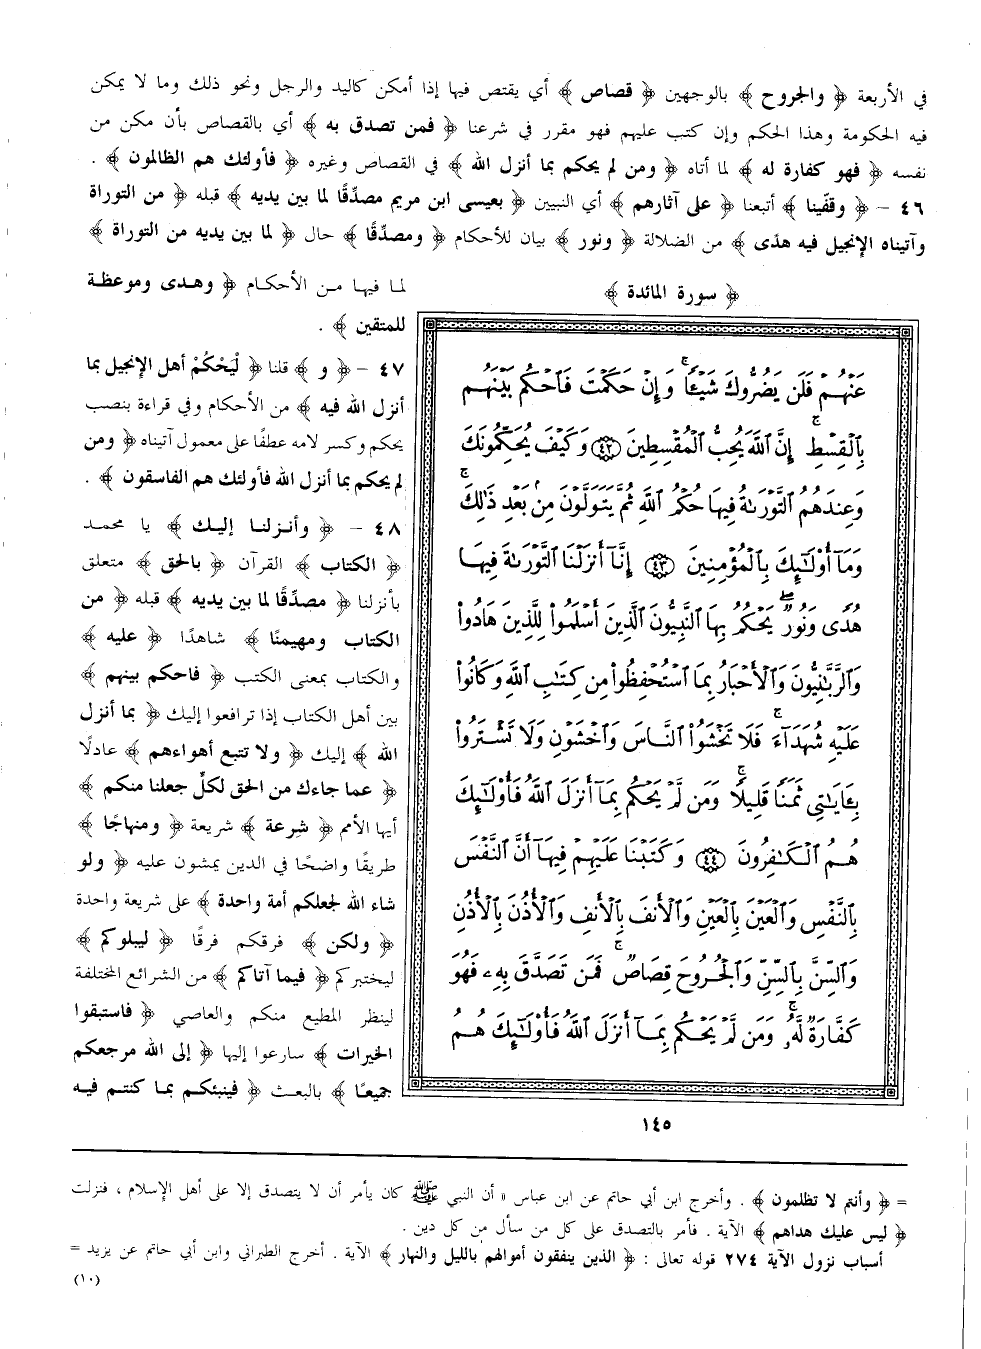 في الأربعة ﴿ والجروح ﴾ بالوجهين ﴿ قصاص ﴾ أي يقتص فيها إذا أمكن كاليد والرجل ونحو ذلك وما لا يمكن
فيه الحكومة وهذا الحكم وإن كتب عليهم فهو مقرر في شرعنا ﴿ فمن تصدق به ﴾ أي بالقصاص بأن مكن من
نفسه ﴿ فهو كفارة له ﴾ لما أتاه ﴿ ومن لم يحكم بما أنزل الله ﴾ في القصاص وغيره ﴿ فأولئك هم الظالمون ﴾ .
٤٦ – ﴿ وقفّينا ﴾ أتبعنا ﴿ على آثارهم ﴾ أي النبيين ﴿ بعيسى ابن مريم مصدّقًا لما بين يديه ﴾ قبله ﴿ من التوراة
وآتيناه الإنجيل فيه هدًى ﴾ من الضلالة ﴿ ونور ﴾ بيان للأحكام ﴿ ومصدّقًا ﴾ حال ﴿ لما بين يديه من التوراة ﴾
لما فيها من الأحكام ﴿ وهدى وموعظة
للمتقين ﴾ .
٤٧ – ﴿ و ﴾ قلنا ﴿ لْيَحْكُمْ أهل الإنجيل بما
أنزل الله فيه ﴾ من الأحكام وفي قراءة بنصب
يحكم وكسر لامه عطفًا على معمول آتيناه ﴿ ومن
لم يحكم بما أنزل الله فأولئك هم الفاسقون ﴾ .
٤٨ – ﴿ وأنزلنا إليك ﴾ يا محمد
﴿ الكتاب ﴾ القرآن ﴿ بالحق ﴾ متعلق
بأنزلنا ﴿ مصدّقًا لما بين يديه ﴾ قبله ﴿ من
الكتاب ومهيمنًا ﴾ شاهدًا ﴿ عليه ﴾
والكتاب بمعنى الكتب ﴿ فاحكم بينهم ﴾
بين أهل الكتاب إذا ترافعوا إليك ﴿ بما أنزل
الله ﴾ إليك ﴿ ولا تتبع أهواءهم ﴾ عادلًا
﴿ عما جاءك من الحق لكلٍّ جعلنا منكم ﴾
أيها الأمم ﴿ شِرعة ﴾ شريعة ﴿ ومنهاجًا ﴾
طريقًا واضحًا في الدين يمشون عليه ﴿ ولو
شاء الله لجعلكم أمة واحدة ﴾ على شريعة واحدة
﴿ ولكن ﴾ فرقكم فرقًا ﴿ ليبلوكم ﴾
ليختبركم ﴿ فيما آتاكم ﴾ من الشرائع المختلفة
لينظر المطيع منكم والعاصي ﴿ فاستبقوا
الخيرات ﴾ سارعوا إليها ﴿ إلى الله مرجعكم
جميعًا ﴾ بالبعث ﴿ فينبئكم بما كنتم فيه
﴿ سورة المائدة ﴾
عَنْهُمْ فَلَن يَضُرُّوكَ شَيْـًٔاۖ وَإِنْ حَكَمْتَ فَٱحْكُم بَيْنَهُم
بِٱلْقِسْطِۚ إِنَّ ٱللَّهَ يُحِبُّ ٱلْمُقْسِطِينَ ﴿٤٢﴾ وَكَيْفَ يُحَكِّمُونَكَ
وَعِندَهُمُ ٱلتَّوْرَىٰةُ فِيهَا حُكْمُ ٱللَّهِ ثُمَّ يَتَوَلَّوْنَ مِنۢ بَعْدِ ذَٰلِكَۚ
وَمَآ أُو۟لَـٰٓئِكَ بِٱلْمُؤْمِنِينَ ﴿٤٣﴾ إِنَّآ أَنزَلْنَا ٱلتَّوْرَىٰةَ فِيهَا
هُدًى وَنُورٌۚ يَحْكُمُ بِهَا ٱلنَّبِيُّونَ ٱلَّذِينَ أَسْلَمُوا۟ لِلَّذِينَ هَادُوا۟
وَٱلرَّبَّـٰنِيُّونَ وَٱلْأَحْبَارُ بِمَا ٱسْتُحْفِظُوا۟ مِن كِتَـٰبِ ٱللَّهِ وَكَانُوا۟
عَلَيْهِ شُهَدَآءَۚ فَلَا تَخْشَوُا۟ ٱلنَّاسَ وَٱخْشَوْنِ وَلَا تَشْتَرُوا۟
بِـَٔايَـٰتِى ثَمَنًا قَلِيلًاۚ وَمَن لَّمْ يَحْكُم بِمَآ أَنزَلَ ٱللَّهُ فَأُو۟لَـٰٓئِكَ
هُمُ ٱلْكَـٰفِرُونَ ﴿٤٤﴾ وَكَتَبْنَا عَلَيْهِمْ فِيهَآ أَنَّ ٱلنَّفْسَ
بِٱلنَّفْسِ وَٱلْعَيْنَ بِٱلْعَيْنِ وَٱلْأَنفَ بِٱلْأَنفِ وَٱلْأُذُنَ بِٱلْأُذُنِ
وَٱلسِّنَّ بِٱلسِّنِّ وَٱلْجُرُوحَ قِصَاصٌۚ فَمَن تَصَدَّقَ بِهِۦ فَهُوَ
كَفَّارَةٌ لَّهُۥۚ وَمَن لَّمْ يَحْكُم بِمَآ أَنزَلَ ٱللَّهُ فَأُو۟لَـٰٓئِكَ هُمُ
١٤٥
= ﴿ وأنتم لا تظلمون ﴾ . وأخرج ابن أبي حاتم عن ابن عباس « أن النبي ﷺ كان يأمر أن لا يتصدق إلا على أهل الإسلام ، فنزلت
﴿ ليس عليك هداهم ﴾ الآية . فأمر بالتصدق على كل من سأل من كل دين .
أسباب نزول الآية ٢٧٤ قوله تعالى : ﴿ الذين ينفقون أموالهم بالليل والنهار ﴾ الآية . أخرج الطبراني وابن أبي حاتم عن يزيد =
(١٠)